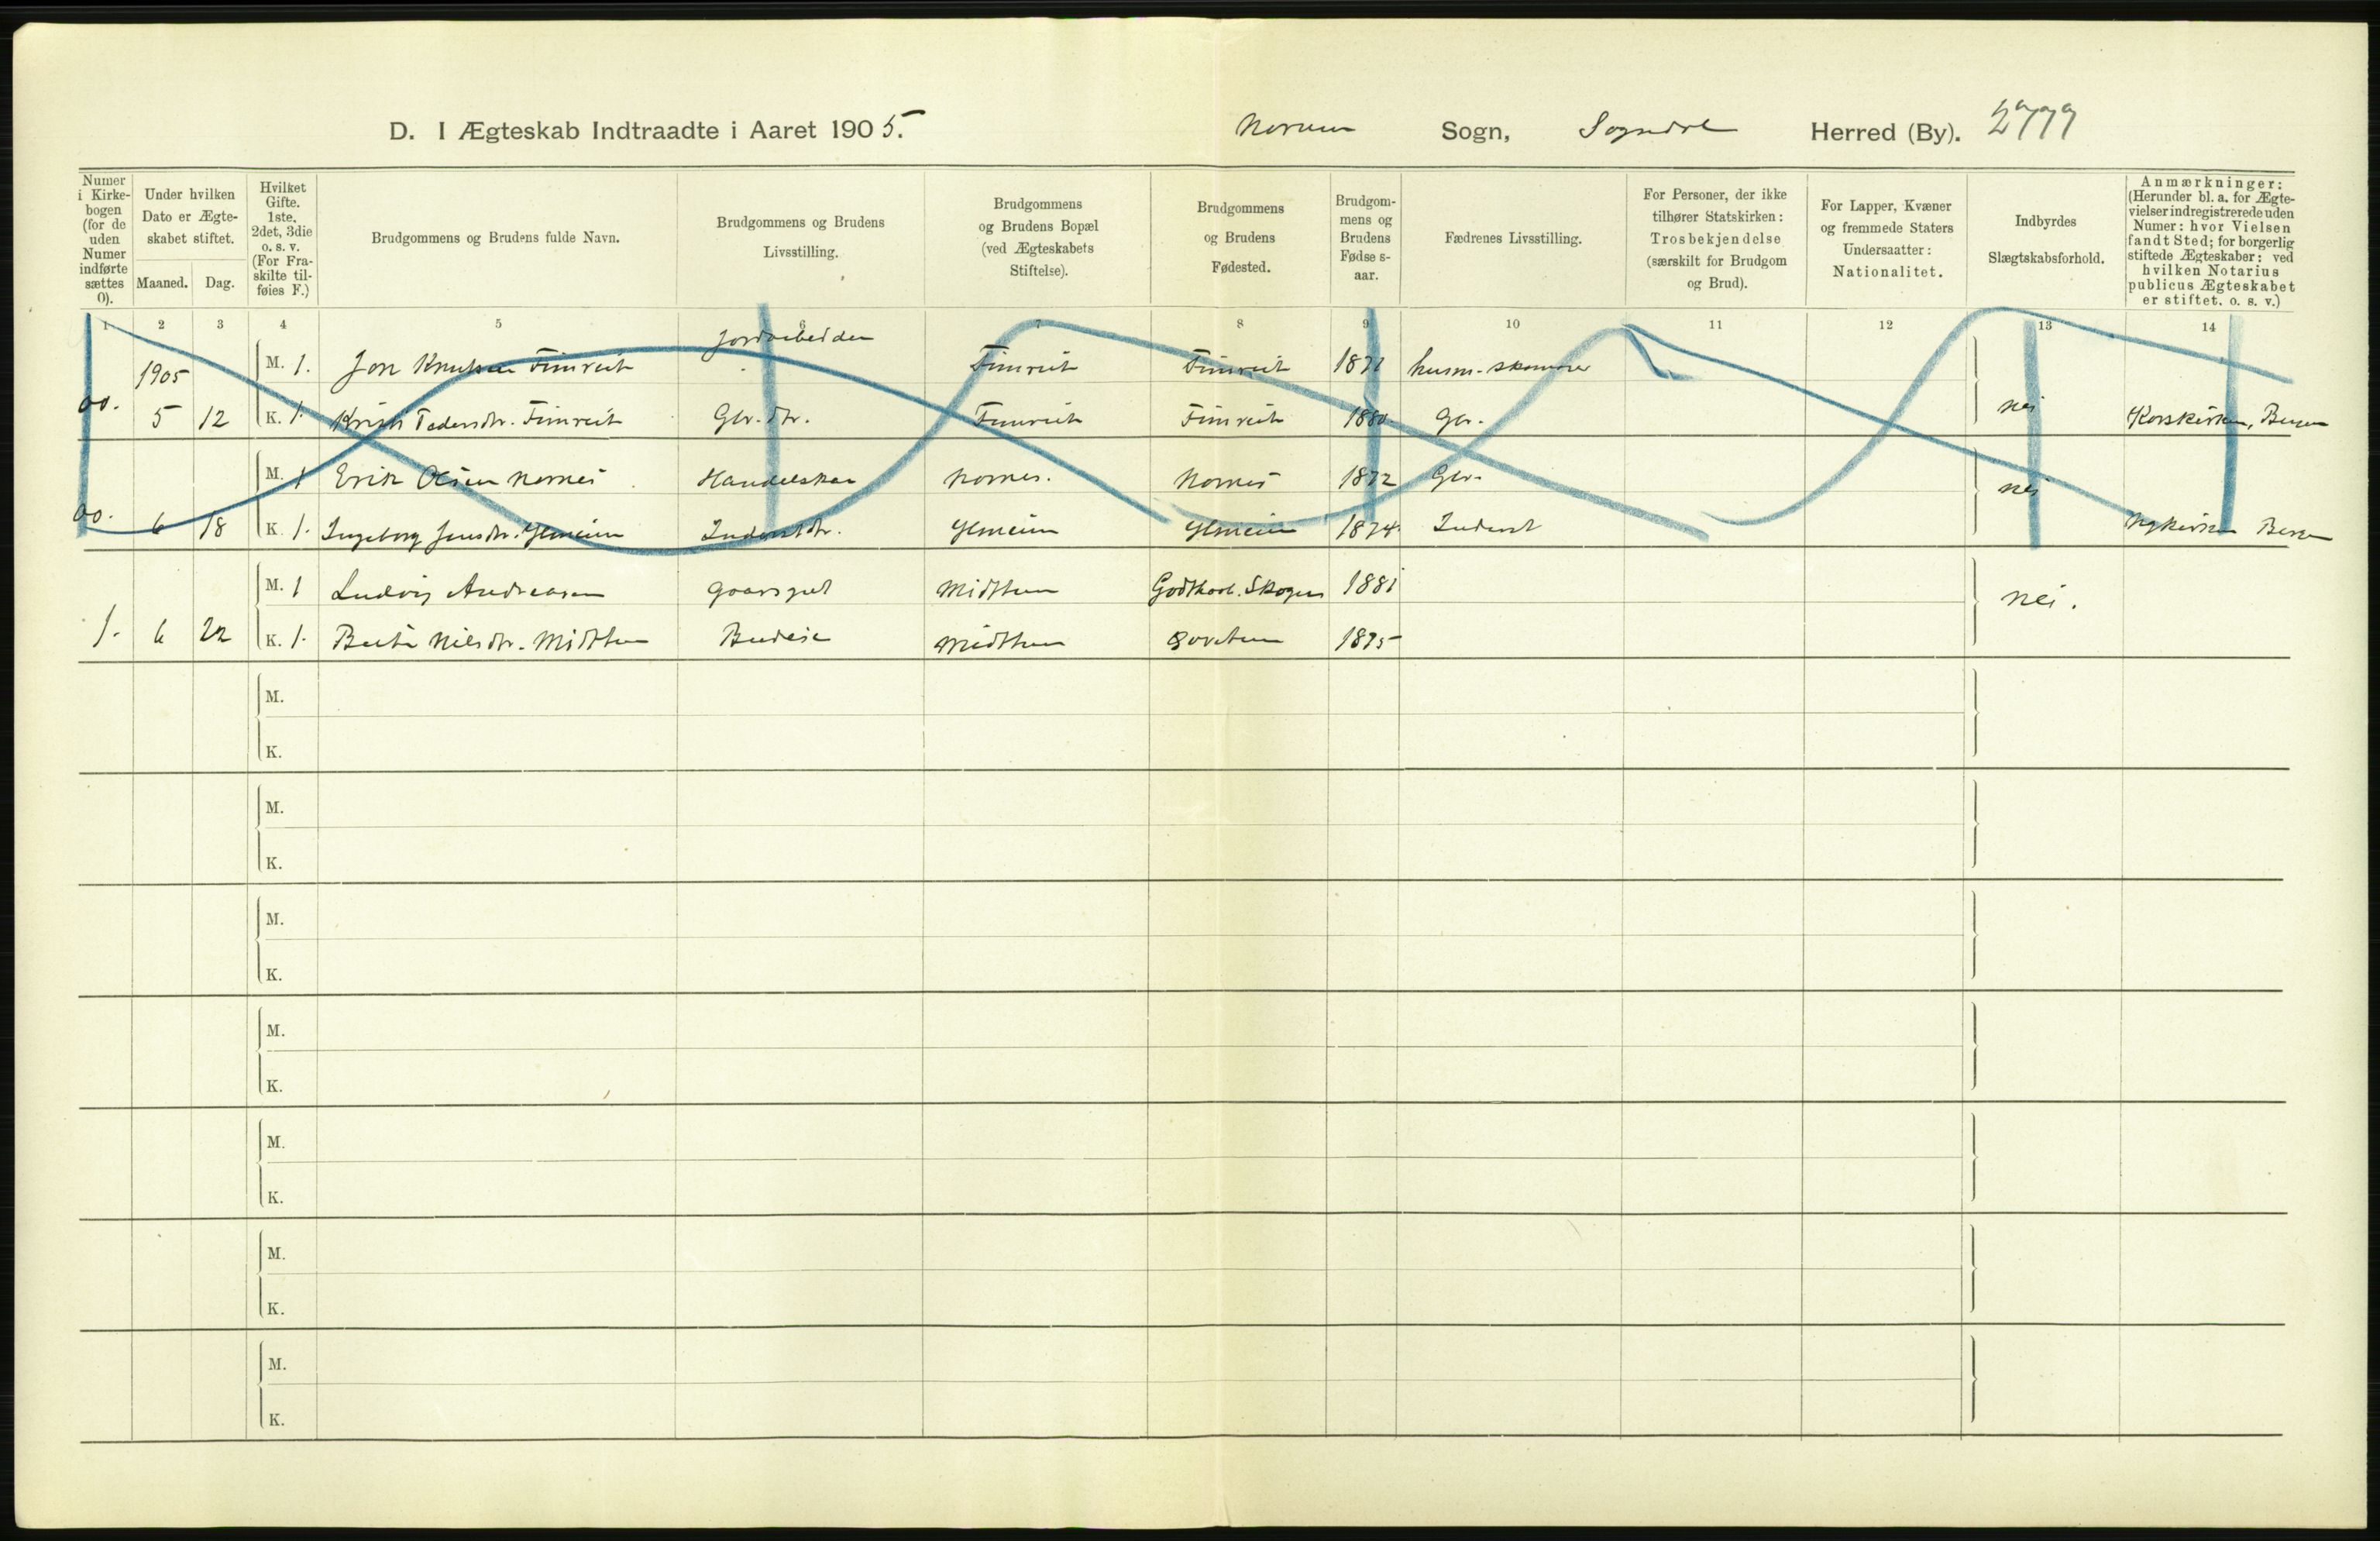 D. I Ægteskab Indtraadte i Aaret 1905. Norum Sogn, Sogndal Herred (By). 2779
Numer i Kirkebogen (for de uden Numer indførte sættes 0).
Under hvilken Dato er Ægteskabet stiftet.
Maaned. Dag.
Hvilket Gifte. 1ste, 2det, 3die o. s. v. (For Fraskilte tilføies F.)
Brudgommens og Brudens fulde Navn.
Brudgommens og Brudens Livsstilling.
Brudgommens og Brudens Bopæl (ved Ægteskabets Stiftelse).
Brudgommens og Brudens Fødested.
Brudgommens og Brudens Fødse s-aar.
Fædrenes Livsstilling.
For Personer, der ikke tilhører Statskirken: Trosbekjendelse (særskilt for Brudgom og Brud).
For Lapper, Kvæner og fremmede Staters Undersaatter: Nationalitet.
Indbyrdes Slægtskabsforhold.
Anmærkninger: (Herunder bl. a. for Ægtevielser indregistrerede uden Numer: hvor Vielsen fandt Sted; for borgerlig stiftede Ægteskaber: ved hvilken Notarius publicus Ægteskabet er stiftet. o. s. v.)
1 2 3 4 5 6 7 8 9 10 11 12 13 14
1905 M. 1. Jon Knutsen Fimreit Jordarbeider Fimreit Fimreit 1871 husm.
00. 5 12 K. 1. Kristi Pedersdtr. Fimreit Gbr. dtr. Fimreit Fimreit 1880 Gbr. nei Korskirken, Bergen
M. 1 Erik Olsen Nornes Handelskar Nornes. Nornes 1872 Gbr. nei
00. 6 18 K. 1. Ingeborg Jensdtr. Ylmeim Inderstdtr. Ylmeim Ylmeim 1874. Inderst Nykirken Bergen
M. 1 Ludvig Andreasen Midthun Godthaab. Skogn 1881 nei.
1. 6 22 K. 1. Nilsdtr. Midthun Budeie Midthun 1875
M.
K.
M.
K.
M.
K.
M.
K.
M.
K.
M.
K.
M.
K.